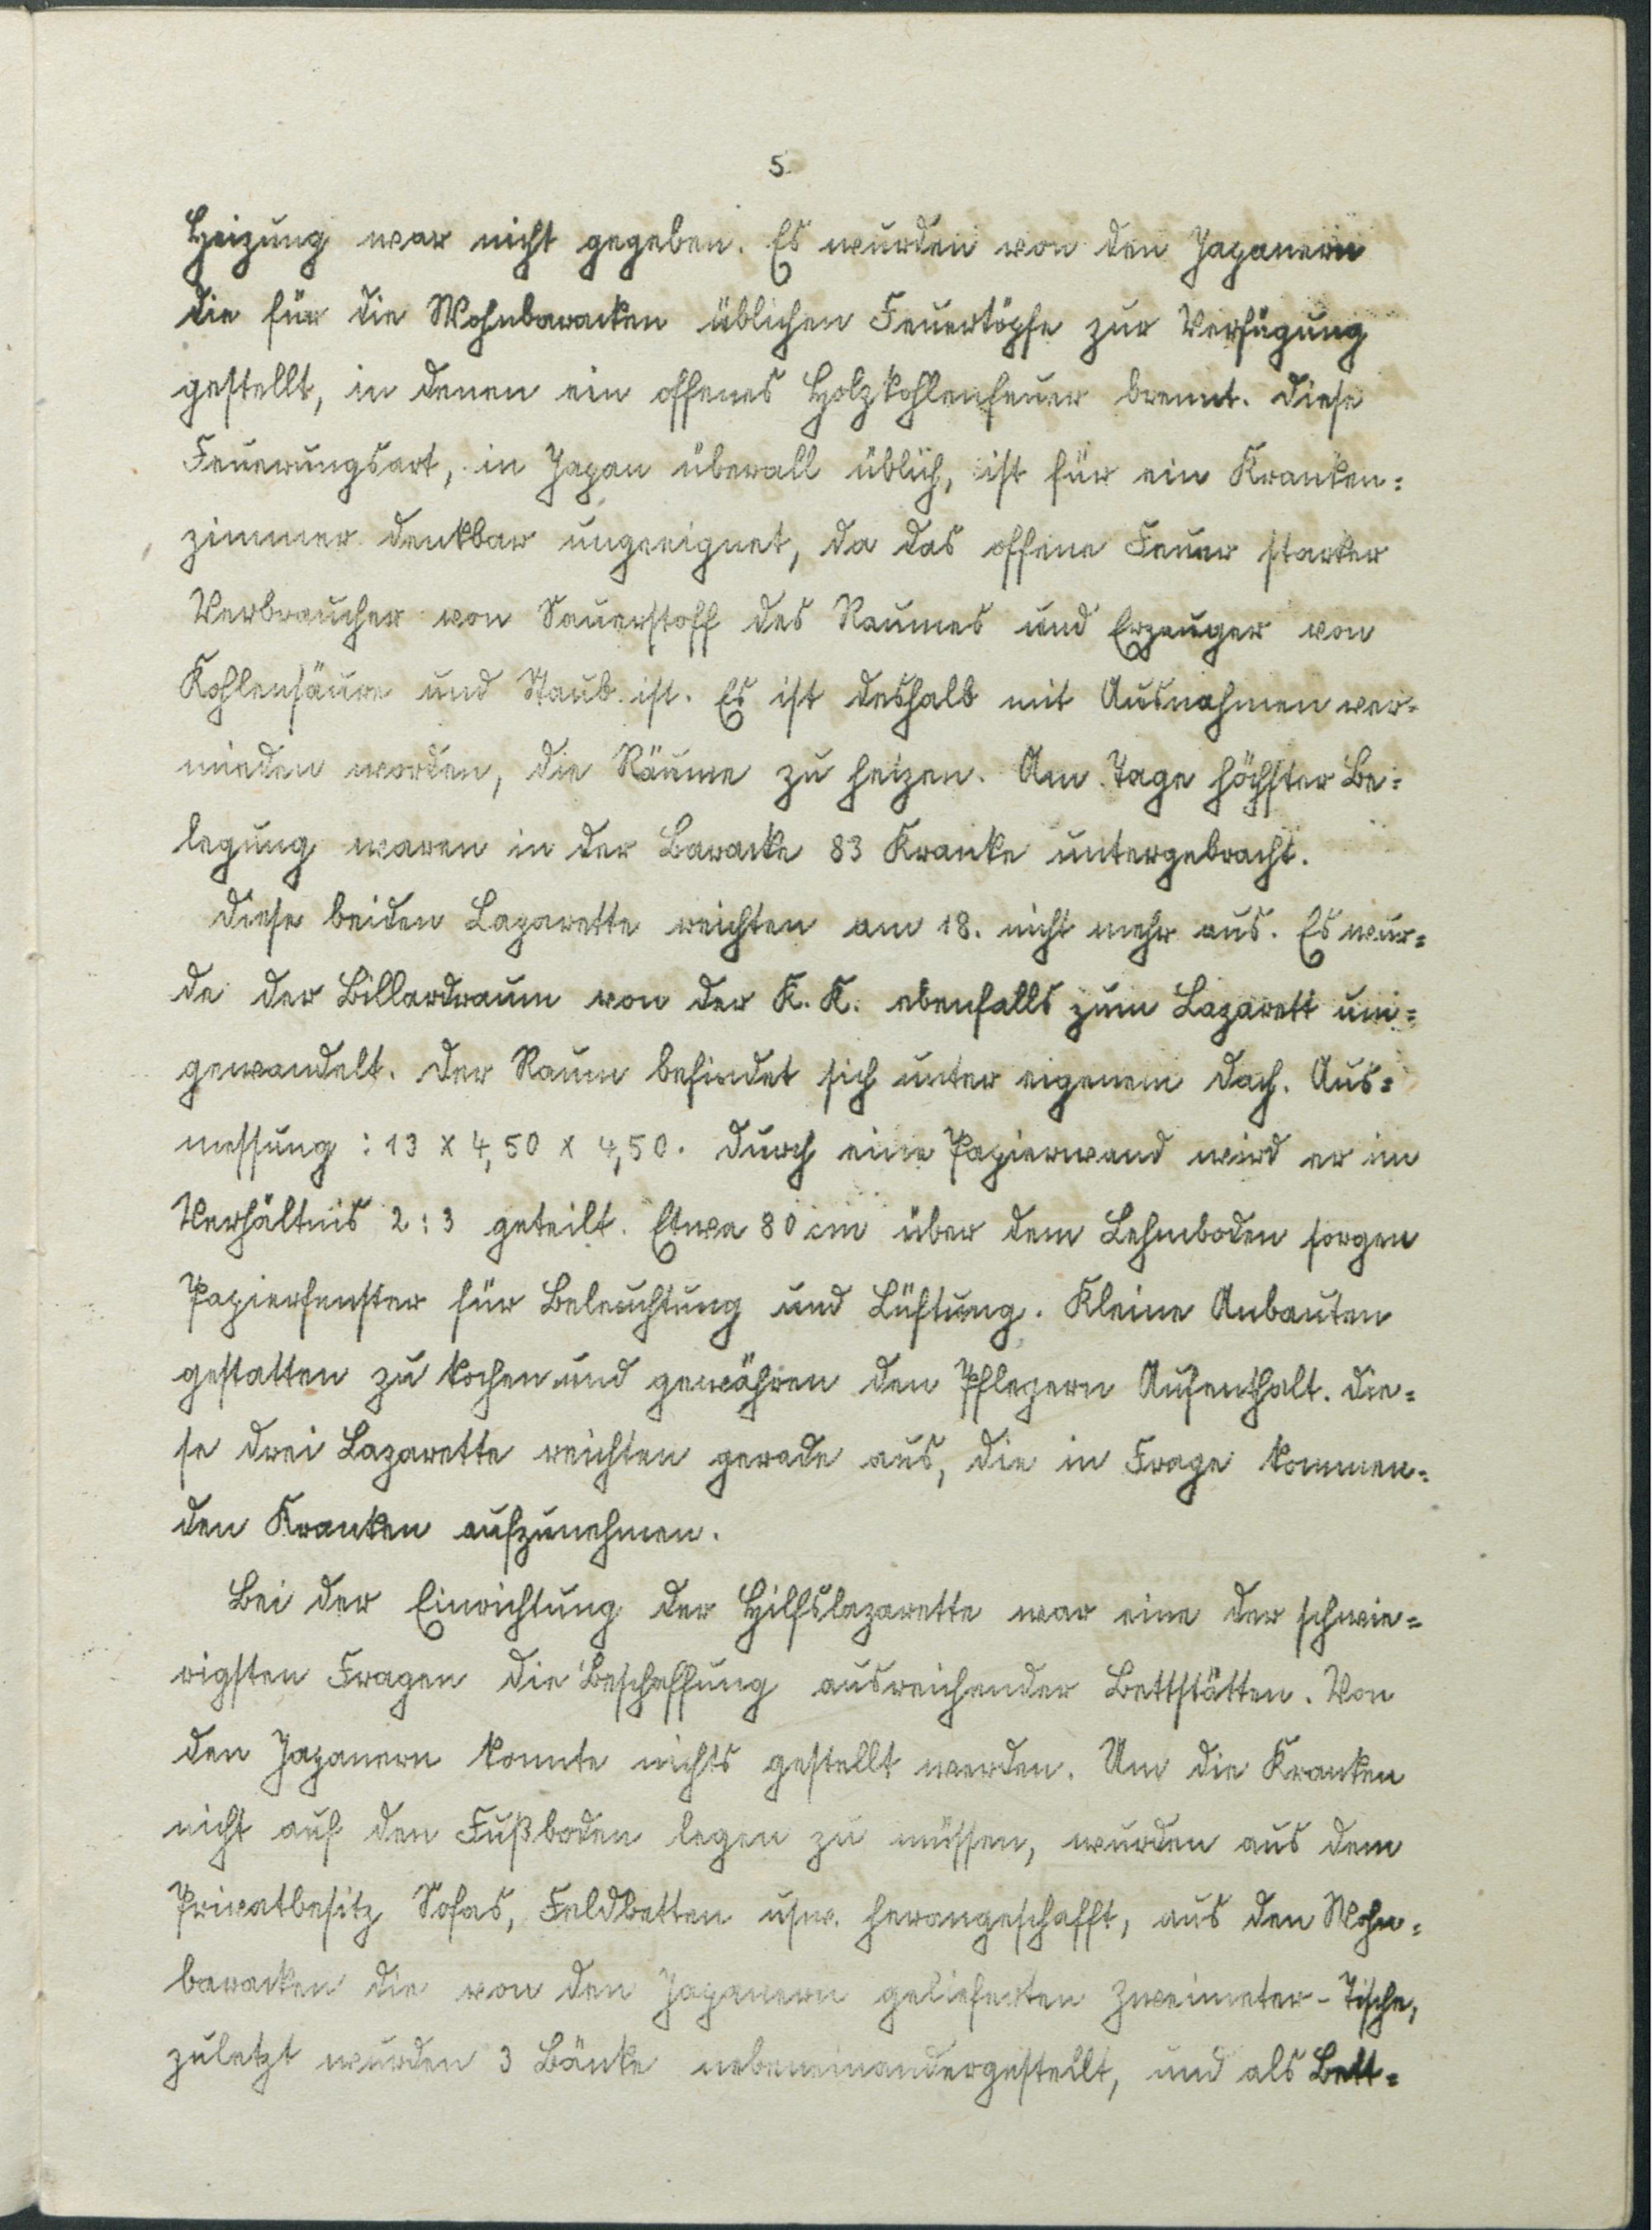 5
Heizung war nicht gegeben. Es wurden von den Japanern
die für die Wohnbaracken üblichen Feuertöpfe zur Verfügung
gestellt, in denen ein offenes Holzkohlenfeuer brennt. Diese
Feuerungsart, in Japan überall üblich, ist für ein Kranken=
zimmer denkbar ungeeignet, da das offene Feuer starker
Verbraucher von Sauerstoff des Raumes und Erzeuger von
Kohlensäure und Staub ist. Es ist deshalb mit Ausnahmen ver=
mieden worden, die Räume zu heizen. Am Tage höchster Be=
legung waren in der Baracke 83 Kranke untergebracht.
Diese beiden Lazarette reichten am 18. nicht mehr aus. Es wur=
de der Billardraum von der K. K. ebenfalls zum Lazarett um=
gewandelt. Der Raum befindet sich unter eigenem Dach. Aus=
messung : 13 x 4,50 x 4,50. Durch eine Papierwand wird er im
Verhältnis 2:3 geteilt. Etwa 80 cm über dem Lehmboden sorgen
Papierfenster für Beleuchtung und Lüftung. Kleine Anbauten
gestatten zu kochen und gewähren den Pflegern Aufenthalt. Die=
se drei Lazarette reichten gerade aus, die in Frage kommen=
den Kranken aufzunehmen.
Bei der Einrichtung der Hilfslazarette war eine der schwie=
rigsten Fragen die Beschaffung ausreichender Bettstätten. Von
den Japanern konnte nichts gestellt werden. Um die Kranken
nicht auf den Fußboden legen zu müssen, wurden aus dem
Privatbesitz Sofas, Feldbetten usw. herangeschafft, aus den Wohn=
baracken die von den Japanern gelieferten Zweimeter-Tische,
zuletzt wurden 3 Bänke nebeneinandergestellt, und als Bett=